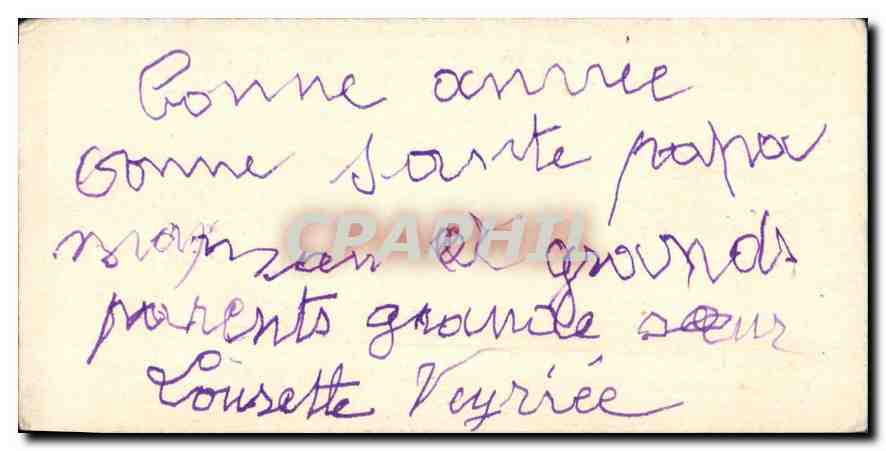 Bonne année
bonne sante papa
maman et grands
parents grande sœur
Lousette Veyriée
CPAPHIL